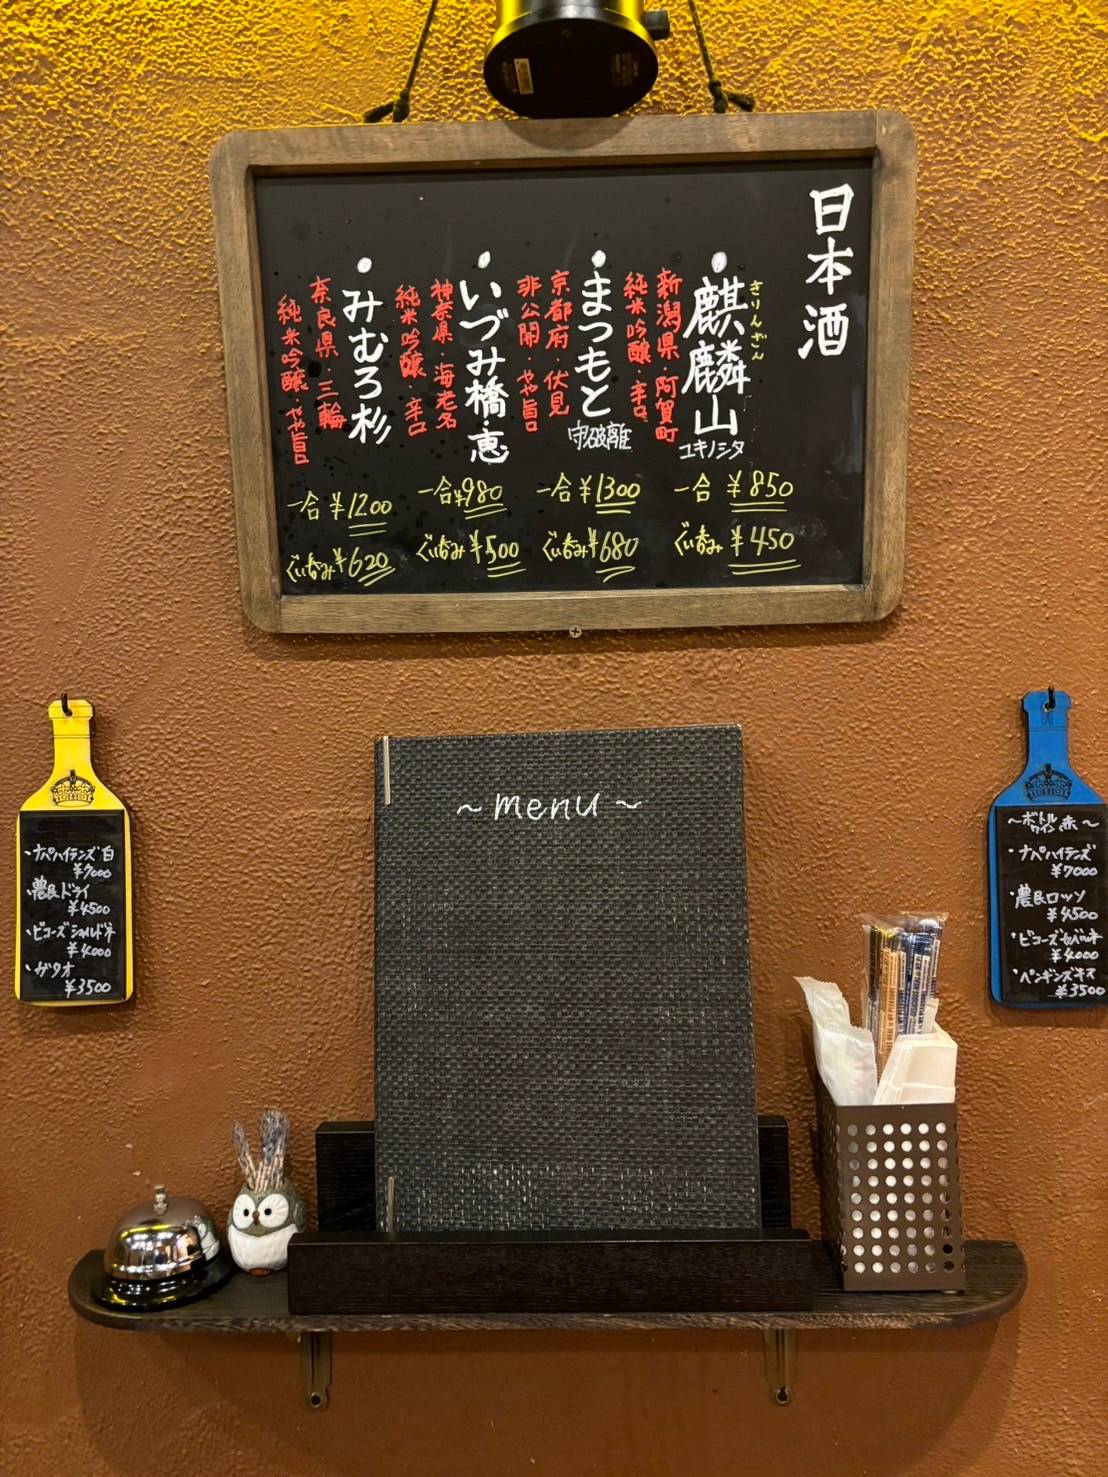 日本酒
・麒麟山
きりんざん
ユキノシタ
新潟県・阿賀町
純米吟醸・辛口
一合 ¥850
ぐい呑み ¥450
・まつもと
守破離
京都府・伏見
非公開・やや旨口
一合 ¥1300
ぐい呑み ¥680
・いづみ橋・恵
神奈県・海老名
純米吟醸・辛口
一合 ¥980
ぐい呑み ¥500
・みむろ杉
奈良県・三輪
純米吟醸・やや旨口
一合 ¥1200
ぐい呑み ¥620
・ナパハイランズ 白
¥7000
・農民ドライ
¥4500
・ビコーズシャルドネ
¥4000
・ガタオ
¥3500
~menu~
~ボトルワイン 赤~
・ナパハイランズ
¥7000
・農民ロッソ
¥4500
・ビコーズカベルネ
¥4000
・ペンギンズキス
¥3500